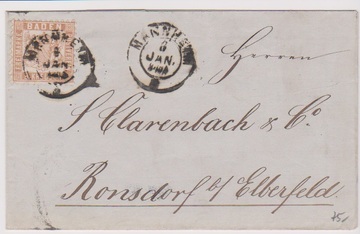 BADEN
MANNHEIM
6
JAN.
MANNHEIM
6
JAN.
Herren
S. Clarenbach & Co
Ronsdorf b/ Elberfeld.